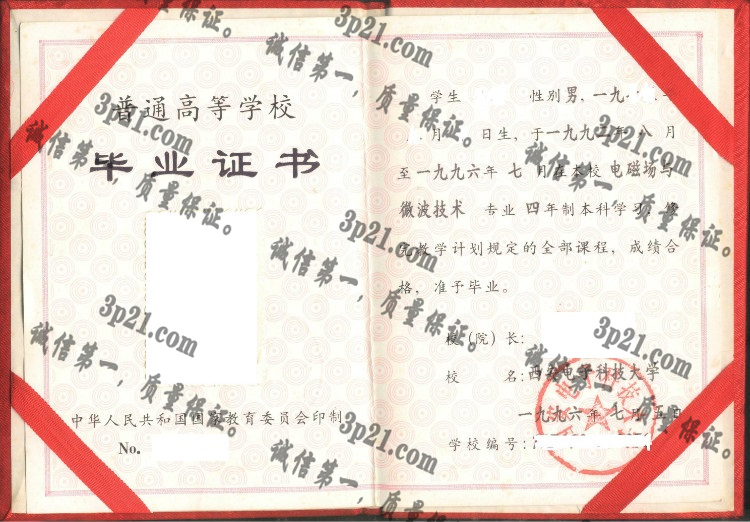 普通高等学校
毕业证书
中华人民共和国国家教育委员会印制
No.
学生 性别男，一九
月 日生，于一九九二年八月
至一九九六年七月在本校电磁场与
微波技术 专业四年制本科学习，修
完教学计划规定的全部课程，成绩合
格，准予毕业。
校（院）长：
校 名：西安电子科技大学
一九九六年七月五日
学校编号：
3p21.com
诚信第一，质量保证。
3p21.com
诚信第一，质量保证。
3p21.com
诚信第一，质量保证。
3p21.com
诚信第一，质量保证。
3p21.com
诚信第一，质量保证。
3p21.com
诚信第一，质量保证。
3p21.com
诚信第一，质量保证。